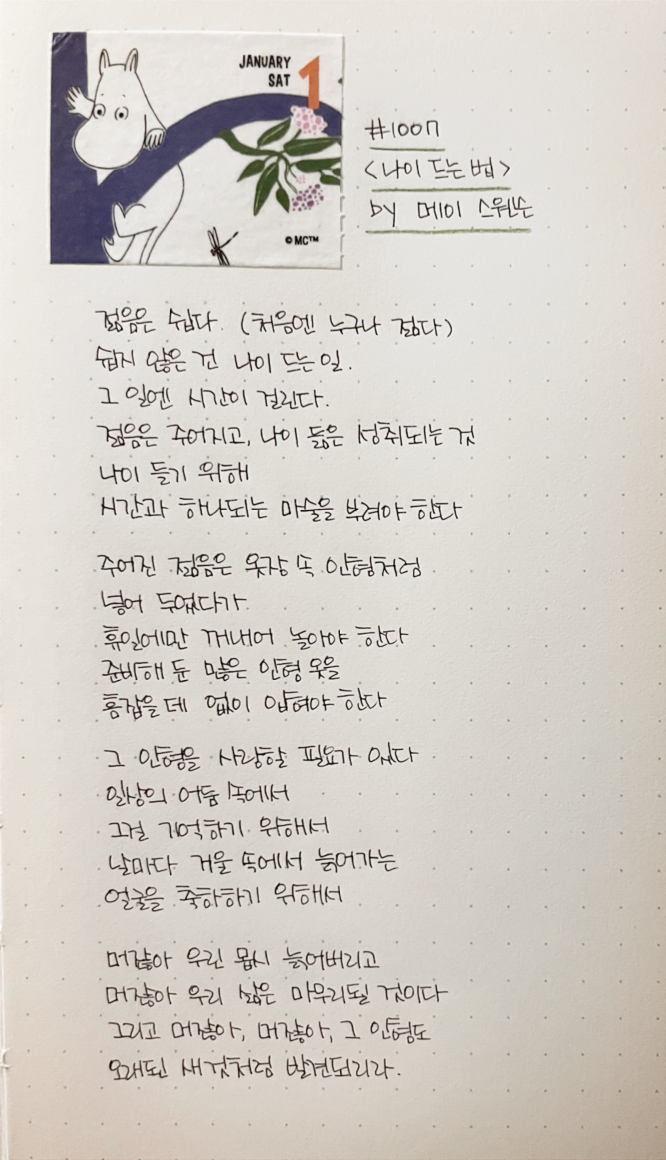 JANUARY
SAT
1
© MC™
#1007
<나이 드는 법>
by 메이 스웬슨
젊음은 쉽다. (처음엔 누구나 젊다)
쉽지 않은 건 나이 드는 일.
그 일엔 시간이 걸린다.
젊음은 주어지고, 나이 듦은 성취되는 것
나이 들기 위해
시간과 하나되는 마술을 부려야 한다
주어진 젊음은 옷장 속 인형처럼
넣어 두었다가
휴일에만 꺼내어 놀아야 한다
준비해 둔 많은 인형 옷을
흠잡을 데 없이 입혀야 한다
그 인형을 사랑할 필요가 있다
일상의 어둠 속에서
그걸 기억하기 위해서
날마다 거울 속에서 늙어가는
얼굴을 축하하기 위해서
머잖아 우린 몹시 늙어버리고
머잖아 우리 삶은 마무리될 것이다
그리고 머잖아, 머잖아, 그 인형도
오래된 새것처럼 발견되리라.